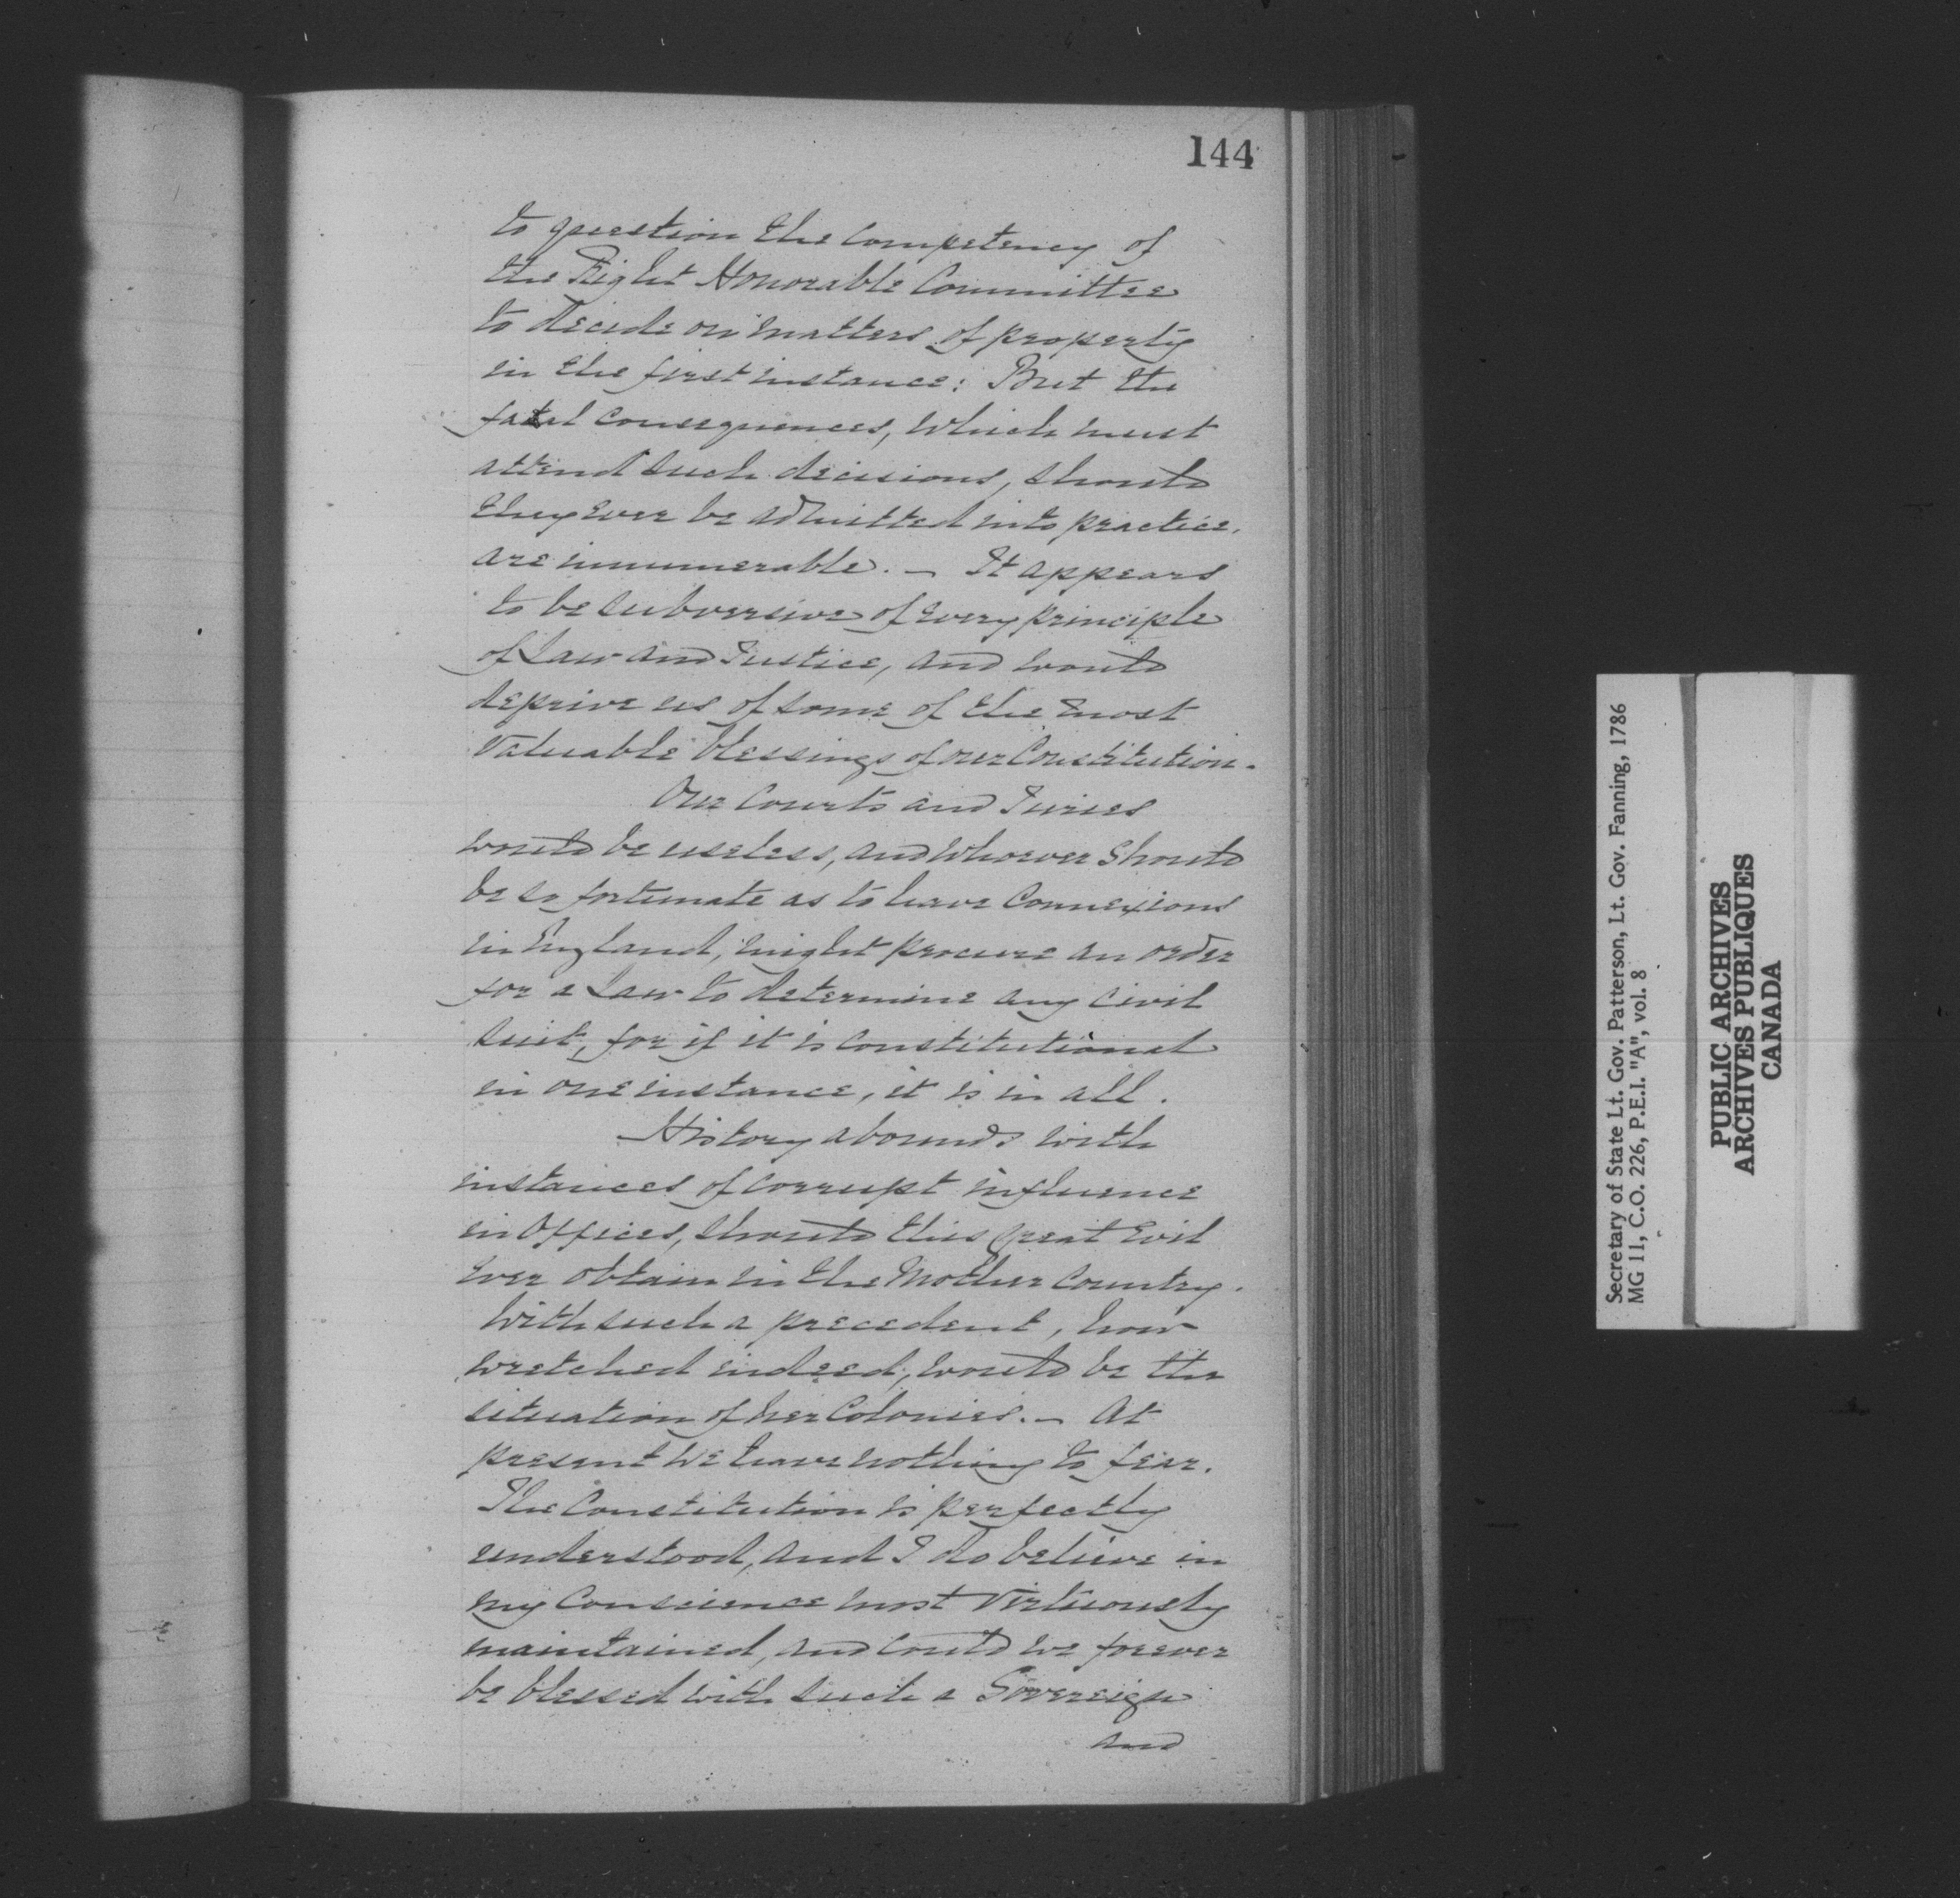 144
to question the competency of
the Right Honorable Committee
to decide on matters of property
in the first instance: But the
fatal consequences, which must
attend such decisions, should
they ever be admitted into practice,
are innumerable. — It appears
to be subversive of every principle
of Law and Justice, and would
deprive us of some of the most
Valuable blessings of our Constitution.
Our Courts and Juries
would be useless, and whoever should
be so fortunate as to have Connexions
in England, might procure an order
for a Law to determine any civil
suit, for if it is constitutional
in one instance, it is in all.
History abounds with
instances of corrupt influence
in Offices, should this great Evil
ever obtain in the Mother Country.
With such a precedent, how
wretched indeed, would be the
situation of her Colonies. — At
present we have nothing to fear.
The Constitution is perfectly
understood, and I do believe in
my Conscience most Virtuously
maintained, and could we forever
be blessed with such a Sovereign
and
Secretary of State Lt. Gov. Patterson, Lt. Gov. Fanning, 1786
MG 11, C.O. 226, P.E.I. "A", vol. 8
PUBLIC ARCHIVES
ARCHIVES PUBLIQUES
CANADA